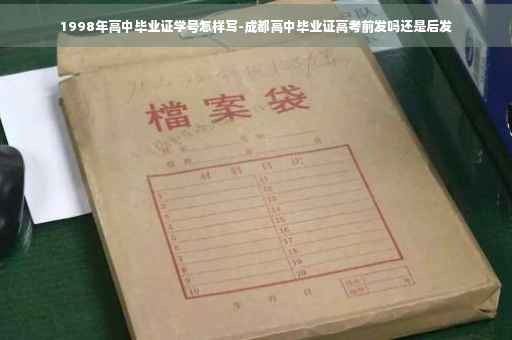 1998年高中毕业证学号怎样写-成都高中毕业证高考前发吗还是后发
檔案袋
材料目次
1 11
2 12
3 13
4 14
5 15
6 16
7 17
8 18
9 19
10 20
年 月 日